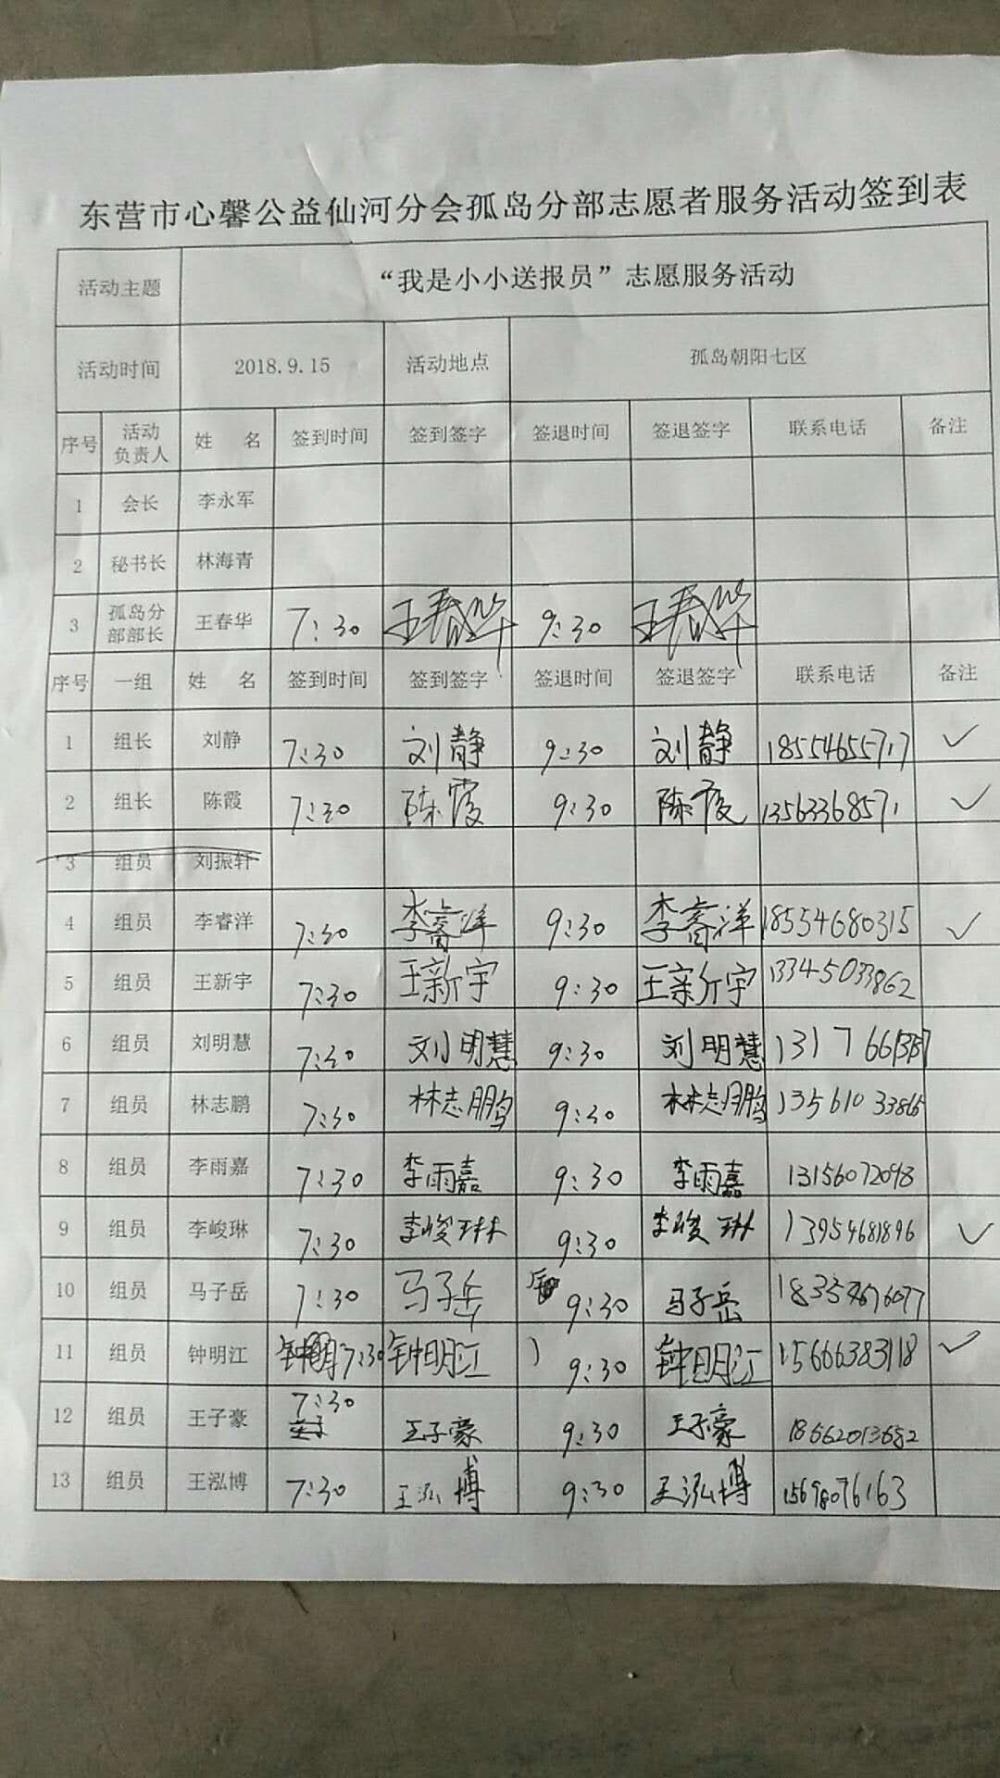 东营市心馨公益仙河分会孤岛分部志愿者服务活动签到表
活动主题 “我是小小送报员”志愿服务活动
活动时间 2018.9.15 活动地点 孤岛朝阳七区
序号 活动负责人 姓 名 签到时间 签到签字 签退时间 签退签字 联系电话 备注
1 会长 李永军
2 秘书长 林海青
3 孤岛分部部长 王春华 7:30 王春华 9:30 王春华
序号 一组 姓 名 签到时间 签到签字 签退时间 签退签字 联系电话 备注
1 组长 刘静 7:30 刘静 9:30 刘静 18554655717 ✓
2 组长 陈霞 7:30 陈霞 9:30 陈霞 13563368571 ✓
3 组员 刘振轩
4 组员 李睿洋 7:30 李睿洋 9:30 李睿洋 18554680315 ✓
5 组员 王新宇 7:30 王新宇 9:30 王新宇 13345033862
6 组员 刘明慧 7:30 刘明慧 9:30 刘明慧
7 组员 林志鹏 7:30 林志鹏 9:30 林志鹏
8 组员 李雨嘉 7:30 李雨嘉 9:30 李雨嘉 13156072093
9 组员 李峻琳 7:30 李峻琳 9:30 李峻琳 13954681896 ✓
10 组员 马子岳 7:30 马子岳 9:30 马子岳
11 组员 钟明江 7:30 钟明江 9:30 钟明江 15666383118 ✓
12 组员 王子豪 7:30 王子豪 9:30 王子豪 18662013682
13 组员 王泓博 7:30 王泓博 9:30 王泓博 15698076163